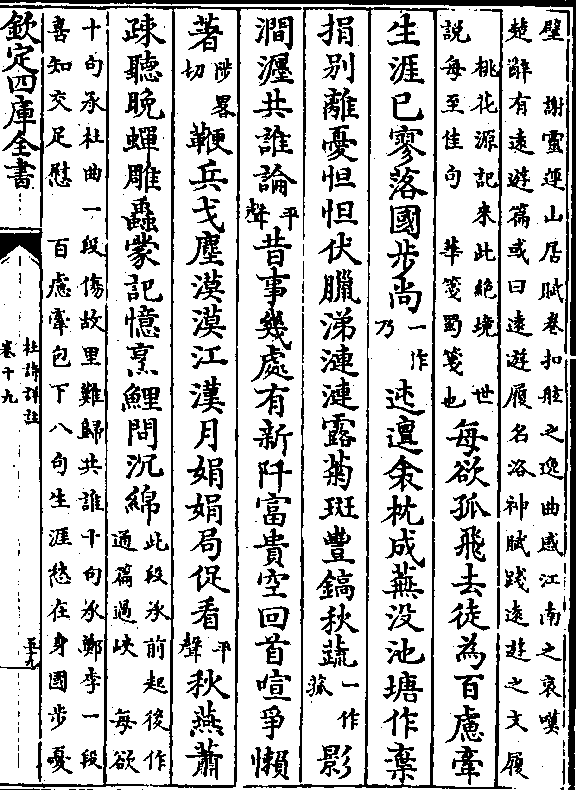 壁　謝靈運山居賦卷扣舷之逸曲感江南之哀嘆
楚辭有遠遊篇或曰遠遊履名洛神賦踐遠遊之文履
桃花源記來此絶境　世
説每至佳句　華箋蜀箋也
每欲孤飛去徒為百慮牽
生涯已寥落國步尚一作乃迍邅衾枕成蕪没池塘作棄
捐别離憂怛怛伏臘涕漣漣露菊斑豐鎬秋蔬一作菰影
澗瀍共誰論平聲昔事幾處有新阡富貴空回首喧爭懶
著陟畧切鞭兵戈塵漠漠江漢月娟娟局促看平聲秋燕蕭
疎聽晚蟬雕蟲蒙記憶烹鯉問沉綿此段承前起後作
通篇過峽　每欲
十句承杜曲一段傷故里難歸共誰十句承鄭李一段
喜知交足慰　百慮牽包下八句生涯愁在身國步憂
欽定四庫全書
杜詩詳註
卷十九